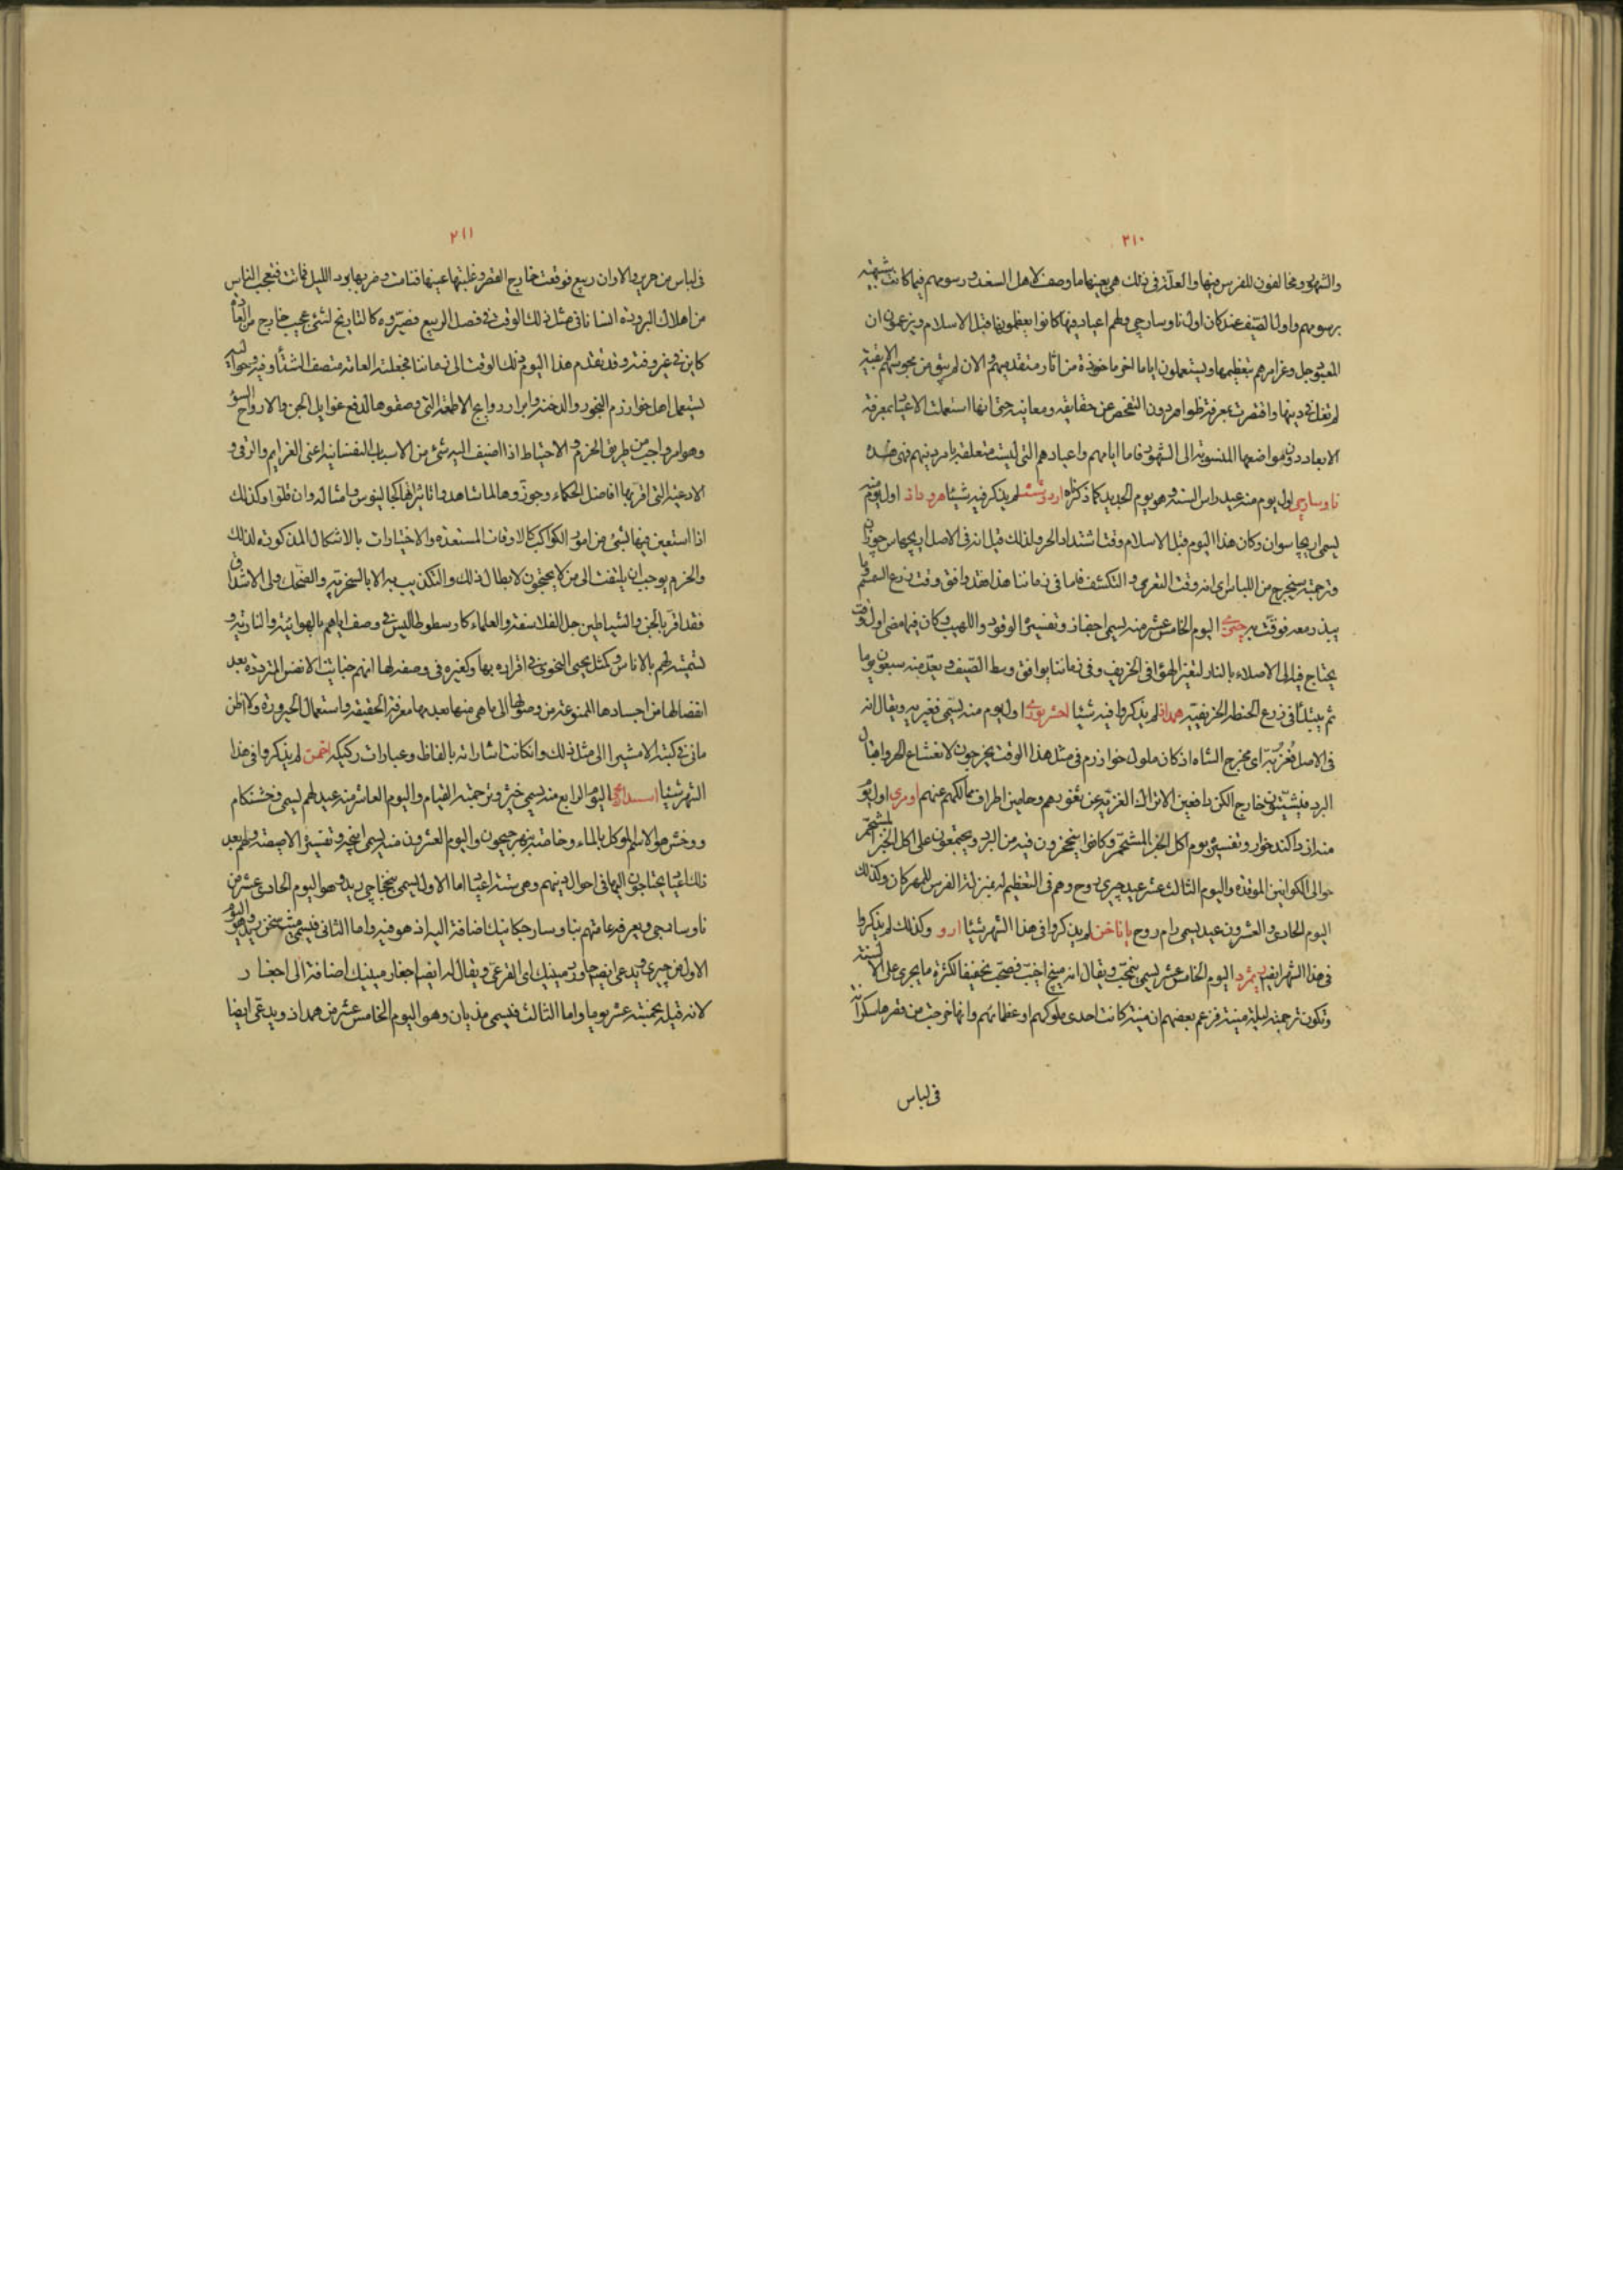 ٢١٠
والشهور ومخالفون للفرس فيها والعلة فى ذلك هى بعينها ما وصف لاهل السغد ورسومهم فيما كانت شبيهة
برسومهم واول الصيف عندهم كان اول ناوسارجى ولهم اعياد فيها كانوا يعظمونها قبل الاسلام ويزعمون ان
المعبود جل وعز امرهم بتعظيمها ويستعملون اياما اخر ماخوذة من آثار متقدميهم والان لم يبق من مجوسهم الا بقية
لم تغل فى دينها واقتصرت بمعرفة ظواهره دون التفحص عن حقايقه ومعانيه حتى انها استعملت الاعياد بمعرفة
الابعاد دون مواضعها المنسوبة الى الشهور فاما ايامهم واعيادهم التى ليست متعلقة بامر دينهم فهى هذه
ناوسارجى اول يوم منه عيد راس السنة وهو يوم الجديد كما ذكرناه اردوشت لم يذكر فيه شيئا هروداذ اول يوم منه
يسمى اريجاسوان وكان هذا اليوم قبل الاسلام وقت اشتداد الحر ولذلك قيل انه فى الاصل اريجهاس جوزان
وترجمته سيخرج من اللباس اى انه وقت التعرى والتكشف فاما فى زماننا هذا فقد وافق وقت زرع السمسم وما
يبذر معه فوقت به جيرى اليوم الخامس عشر منه يسمى اجغار وتفسيره الوقود واللهيب وكان فيما مضى اول وقت
يحتاج فيه الى الاصلاء بالنار لتغير الهواء فى الخريف وفى زماننا يوافق وسط الصيف ويعد منه سبعون يوما
ثم يبتدأ فى زرع الحنطة الخريفية همداذ لم يذكروا فيه شيئا اخشريورى اول يوم منه يسمى فغربه ويقال انه
فى الاصل فغربه اى مخرج الشاه اذ كان ملوك خوارزم فى مثل هذا الوقت يخرجون لانقشاع الحر واقبال
البرد فيشتون خارج الكن دافعين الاتراك الغزية عن ثغورهم وحامين اطراف ممالكهم عنهم اومرى اول يوم
منه ازداكند خوار وتفسيره يوم اكل الخبز المشحم وكانوا ينجحزون فيه من البرد ويجتمعون على اكل الخبز المشحم
حوالى الكوانين الموقدة واليوم الثالث عشر عيد جيرى روج وهم فى التعظيم له بمنزلة الفرس للمهركان وكذلك
اليوم الحادى والعشرون عيد يسمى رام روج ياناخن لم يذكروا فى هذا الشهر شيئا ارو وكذلك لم يذكروا
فى هذا الشهر ايضا ريمژد اليوم الخامس عشر يسمى نيمخب ويقال انه مينج اخيب فصحف تخفيفا لكثرة ما يجرى على الالسنة
وتكون ترجمته ليلة مينه فزعم بعضهم ان مينه كانت احدى ملوكهم او عظمائهم وانها خرجت من قصرها سكرآنة
فى لباس
٢١١
فى لباس من حرير والاوان ربيع فوقعت خارج القصر وغلبتها عينها فنامت وضربها برد الليل فماتت فتعجب الناس
من اهلاك البرودة انسانا فى مثل ذلك الوقت فى فصل الربيع فصيروه كالتاريخ لشئ عجيب خارج من العادة
كاين فى غير وقته وقد تقدم هذا اليوم ذلك الوقت الى زماننا فجعلته العامة منتصف الشتاء وفيه وحواليه
يستعمل اهل خوارزم البخور والدخنة وابراز روايح الاطعمة التى وصفوها لدفع غوايل الجن والارواح السوء
وهو امر واجب من طريق الحزم والاحتياط اذا اضيف اليه شئ من الاسباب النفسانية اعنى العزايم والرقى و
الادعية التى اقر بها افاضل الحكماء وجوزوها لما شاهدوا تاثيراتها كجالينوس وامثاله وان قلوا وكذلك
اذا استعين فيها بشئ من امور الكواكب كالاوقات المستعدة والاختيارات بالاشكال المذكورة لذلك
والحزم يوجب ان يلتفت الى من لا يحتجون لابطال ذلك والتكذيب به الا بالسخرية والضحك ولى الاشداق
فقد اقر بالجن والشياطين جل الفلاسفة والعلماء كارسطوطاليس فى وصف اياهم بالهوائية والنارية و
تسميته لهم بالاناس وكمثل يحيى النحوى فى اقراره بها وكغيره فى وصفه لها انهم خبايث الانفس المترددة بعد
انفصالها من اجسادها الممنوعة من وصولها الى ما هى منها بعدمها معرفة الحقيقة واستعمال الحيرورة ولا اظن
مانى فى كتبه الا مشيرا الى مثل ذلك وان كانت اشاراته بالفاظ وعبارات ركيكة اخمن لم يذكروا فى هذا
الشهر شيئا اسبندارمجى اليوم الرابع منه يسمى خيژ وترجمته القيام واليوم العاشر منه عيد لهم يسمى وخشنكام
ووخش هو الاسم الموكل بالماء وخاصة بنهر جيحون واليوم العشرون منه يسمى اينجه وتفسيره الاصيصة ولهم بعد
ذلك اعياد يحتاجون اليها فى احوال دينهم وهى ستة اعياد اما الاول يسمى بنجاجى ريد وهو اليوم الحادى عشر من
ناوسارجى ويعرفه عامتهم بناوسارجكانيك اضافة اليه اذ هو فيه واما الثانى فيسمى ميث سخن ريد وهو اليوم
الاول من جيرى ويدعى ايضا جاوردمينيك اى القرعى ويقال له ايضا اجغار مينيك اضافة الى اجغار
لانه قبله بخمسة عشر يوما واما الثالث فيسمى مذيان وهو اليوم الخامس عشر من همداذ ويدعى ايضا